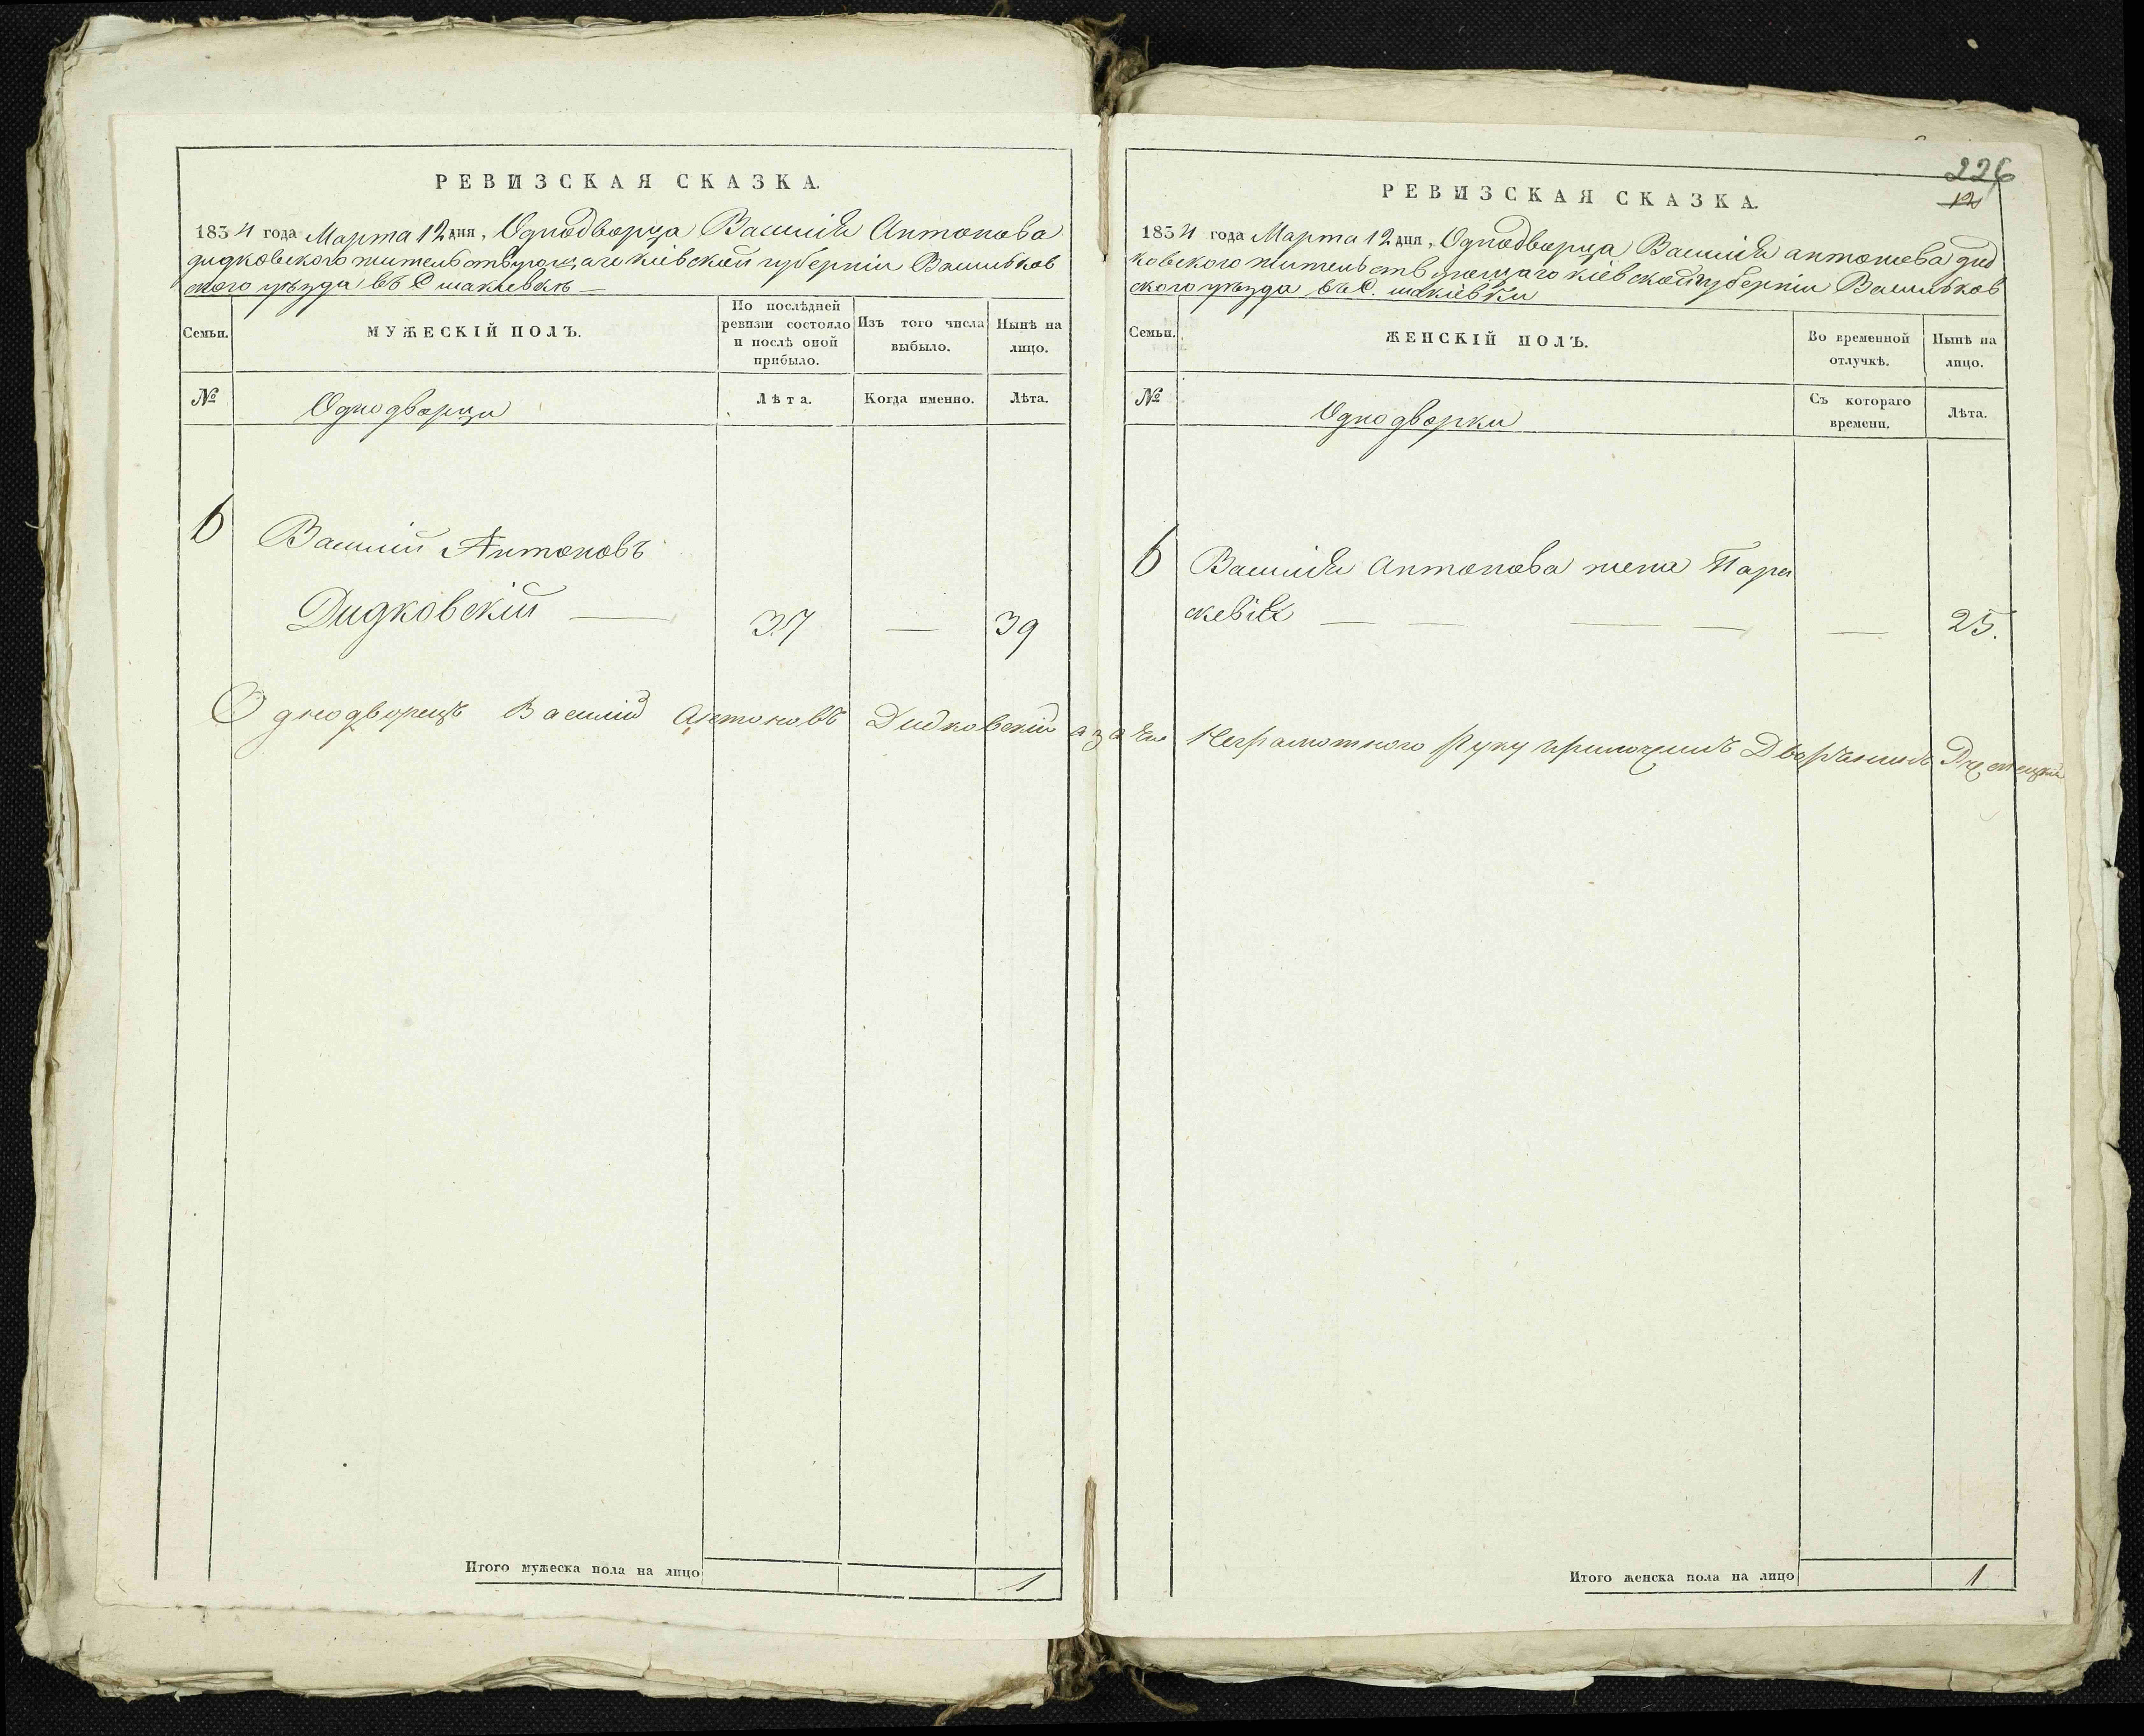 РЕВИЗСКАЯ СКАЗКА.
1834 года Марта 12 дня, Однодворца Василія Антонова
дидковского жительствующаго кіевской губерніи Васильков
ского уезда въ С
По послѣдней ревизіи состояло и послѣ оной прибыло.
Семьи. МУЖЕСКІЙ ПОЛЪ. Изъ того числа выбыло. Нынѣ на лицо.
№ Однодворцы Лѣта. Когда именно. Лѣта.
6 Василий Антоновъ
Дидковскій — 37 — 39
Однодворецъ Василій Антоновъ Дидковскій а за его
Итого мужеска пола на лицо 1
226
12
РЕВИЗСКАЯ СКАЗКА.
1834 года Марта 12 дня, Однодворца Василія антонова дид
ковского жительствующаго кіевской губерніи Васильков
ского уезда в С.
Семьи. ЖЕНСКІЙ ПОЛЪ. Во временной отлучкѣ. Нынѣ на лицо.
№ Однодворки Съ котораго времени. Лѣта.
6 Василія Антонова жена Пара
скевія — — — — — 25.
Неграмотного руку приложилъ Дворянинъ
Итого женска пола на лицо 1